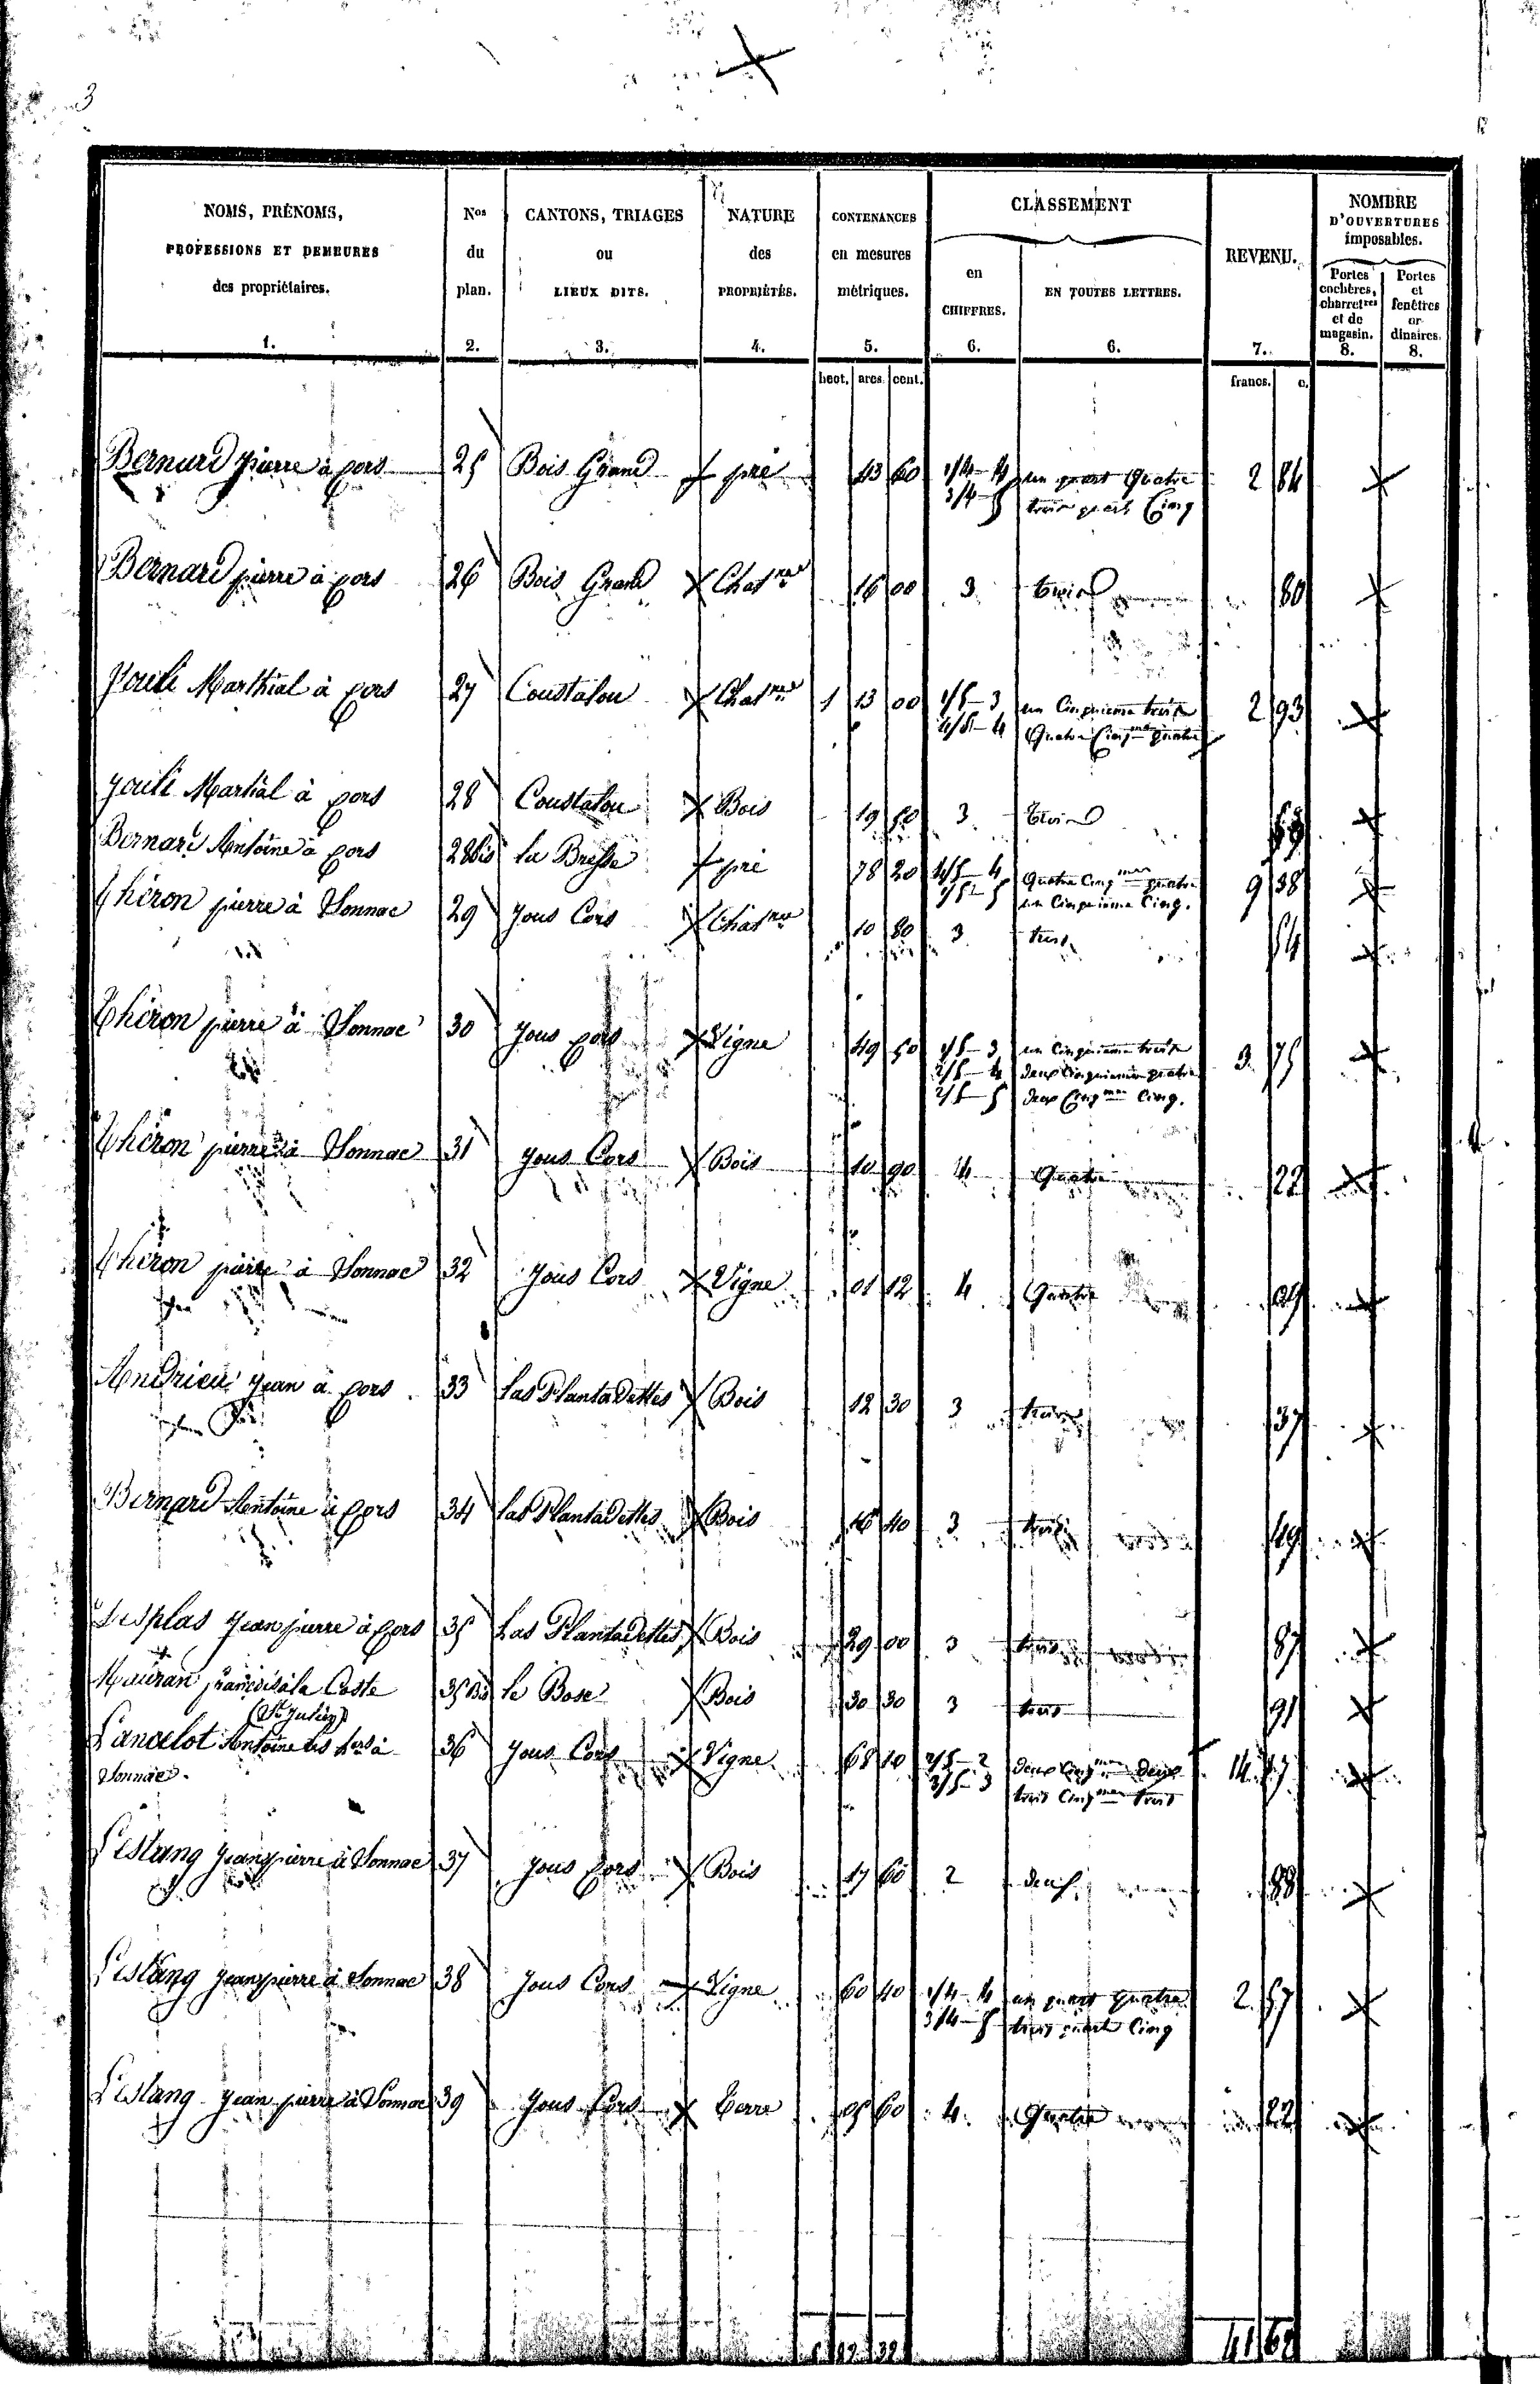 3
NOMS, PRÉNOMS, PROFESSIONS ET DEMEURES des propriétaires. 1.
Nos du plan. 2.
CANTONS, TRIAGES ou LIEUX DITS. 3.
NATURE des PROPRIÉTÉS. 4.
CONTENANCES en mesures métriques. 5.
CLASSEMENT
en CHIFFRES. 6.
EN TOUTES LETTRES. 6.
REVENU. 7.
NOMBRE D'OUVERTURES imposables.
Portes cochères, charretres et de magasin. 8.
Portes et fenêtres or dinaires. 8.
hect. ares. cent. francs. c.
Bernard pierre à cors 25 Bois Grand pré 43 60 1/4 - 4 un quart Quatre 2 84
3/4 - 5 trois quarts Cinq
Bernard pierre à cors 26 Bois Grand Chatnie 16 00 3 trois 80
Marthial à cors 27 Coustalou Chatnie 1 13 00 1/5 - 3 un Cinquieme trois 2 93
4/5 - 4 Quatre Cinqmes quatre
Martial à cors 28 Coustalou Bois 19 60 3 trois 59
Bernard Antoine à cors 28bis La Bresse pré 78 20 4/5 - 4 Quatre Cinqmes quatre 9 38
1/5 - 5 un Cinquieme Cinq.
Théron pierre à Sonnac 29 Jous Cors Chatnie 10 80 3 trois 54
Théron pierre à Sonnac 30 Jous cors Vigne 49 50 1/5 - 3 un Cinquieme trois 3 75
2/5 - 4 deux Cinquiemes quatre
2/5 - 5 deux Cinqmes Cinq.
Théron pierre à Sonnac 31 Jous Cors Bois 10 90 4 Quatre 22
Théron pierre à Sonnac 32 Jous Cors Vigne 01 12 4 Quatre 09
Andrieu Jean à cors 33 Las Plantadettes Bois 12 30 3 trois 37
Bernard Antoine à cors 34 Las Plantadettes Bois 16 40 3 trois 49
Desplas Jean pierre à cors 35 Las Plantadettes Bois 29 00 3 trois 87
Mauran françois à la Coste 35 Bis Le Bosc Bois 30 30 3 trois 91
(St Julien)
Lancelot Antoine les hers à 36 Jous Cors Vigne 68 10 2/5 - 2 deux Cinqmes deux 14 57
Sonnac. 3/5 - 3 trois Cinqmes trois
Lestang Jean pierre à Sonnac 37 Jous Cors Bois 17 60 2 deux 88
Lestang Jean pierre à Sonnac 38 Jous Cors Vigne 60 40 1/4 - 4 un quart quatre 2 57
3/4 - 5 trois quarts Cinq
Lestang Jean pierre à Sonnac 39 Jous Cors Terre 05 60 4 Quatre 22
92 32 41 62